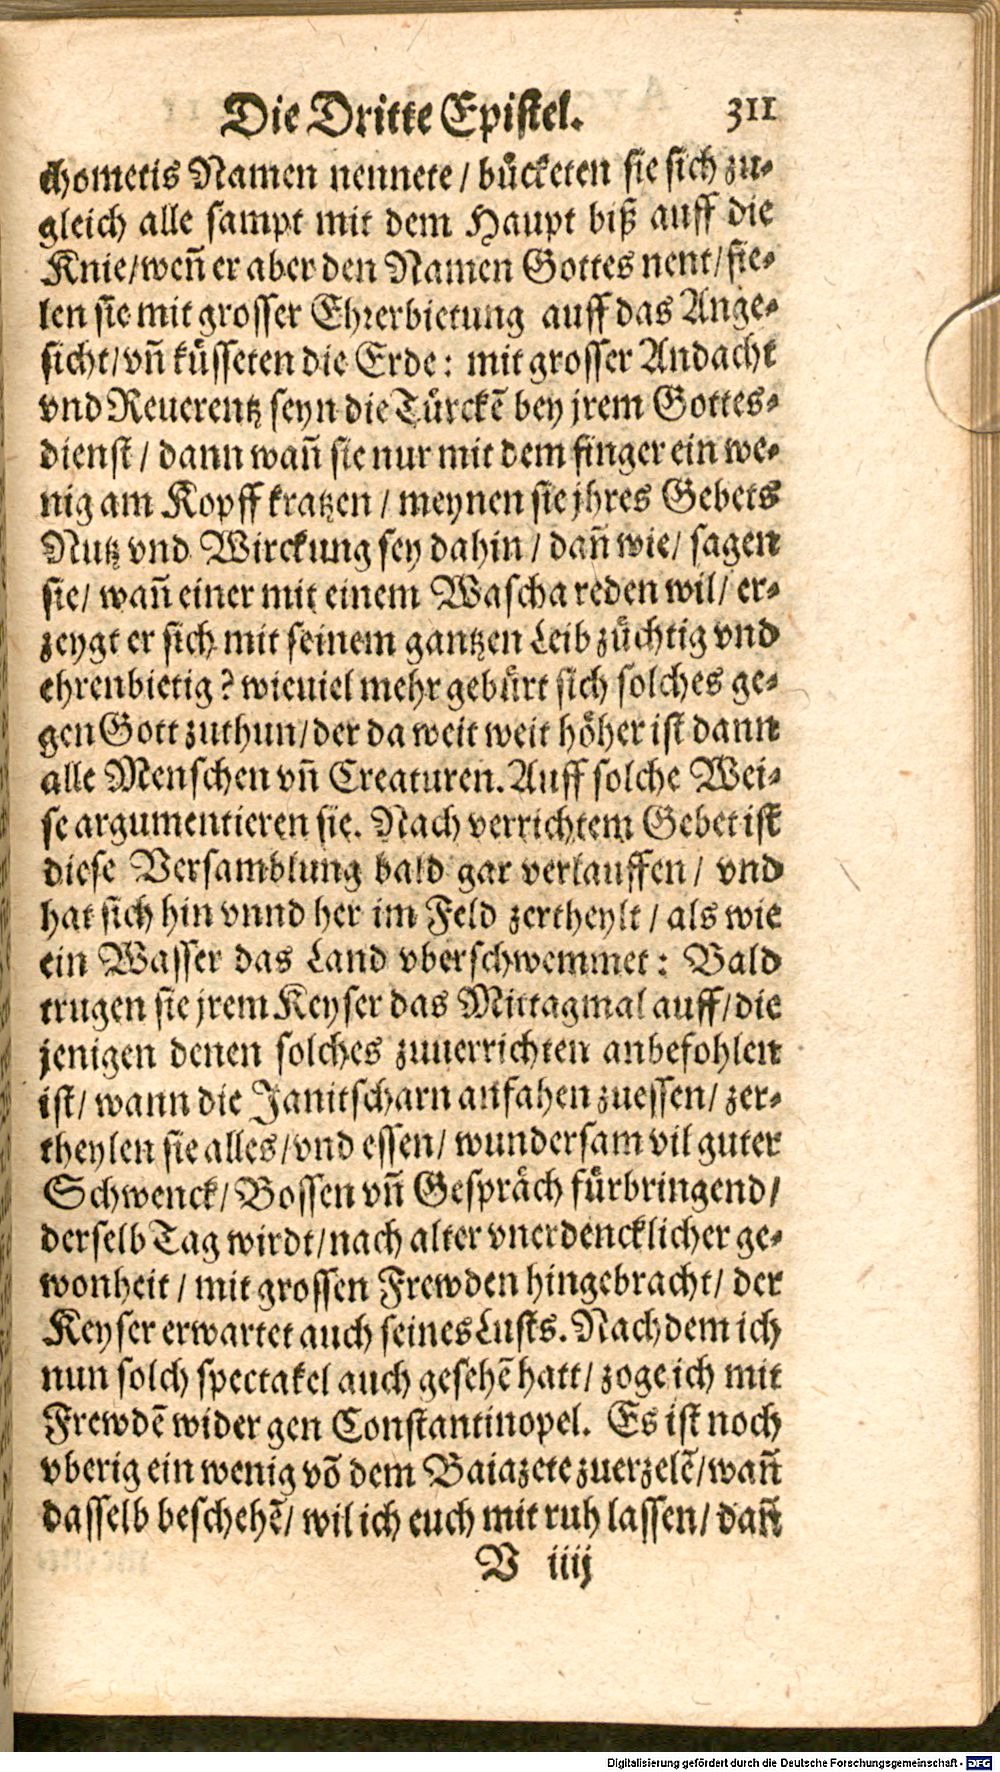 Die Dritte Epistel. 311
chometis Namen nennete / bücketen sie sich zu-
gleich alle sampt mit dem Haupt biß auff die
Knie/weñ er aber den Namen Gottes nent/ fie-
len sie mit grosser Ehrerbietung auff das Ange-
sicht/vñ küsseten die Erde: mit grosser Andacht
vnd Reuerentz seyn die Türckẽ bey jrem Gottes-
dienst / dann wañ sie nur mit dem finger ein we-
nig am Kopff kratzen / meynen sie jhres Gebets
Nutz vnd Wirckung sey dahin / dañ wie/ sagen
sie/ wañ einer mit einem Wascha reden wil/ er-
zeygt er sich mit seinem gantzen Leib züchtig vnd
ehrenbietig? wieuiel mehr gebürt sich solches ge-
gen Gott zuthun/der da weit weit höher ist dann
alle Menschen vñ Creaturen. Auff solche Wei-
se argumentieren sie. Nach verrichtem Gebet ist
diese Versamblung bald gar verlauffen / vnd
hat sich hin vnnd her im Feld zertheylt / als wie
ein Wasser das Land vberschwemmet: Bald
trugen sie jrem Keyser das Mittagmal auff/die
jenigen denen solches zuuerrichten anbefohlen
ist/ wann die Janitscharn anfahen zuessen/ zer-
theylen sie alles/vnd essen/ wundersam vil guter
Schwenck/ Bossen vñ Gespräch fürbringend/
derselb Tag wirdt/nach alter vnerdencklicher ge-
wonheit / mit grossen Frewden hingebracht/ der
Keyser erwartet auch seines Lusts. Nach dem ich
nun solch spectakel auch gesehẽ hatt/ zoge ich mit
Frewdẽ wider gen Constantinopel. Es ist noch
vberig ein wenig võ dem Baiazete zuerzelẽ/wañ
dasselb beschehẽ/ wil ich euch mit ruh lassen/ dañ
V iiij
Digitalisierung gefördert durch die Deutsche Forschungsgemeinschaft - DFG